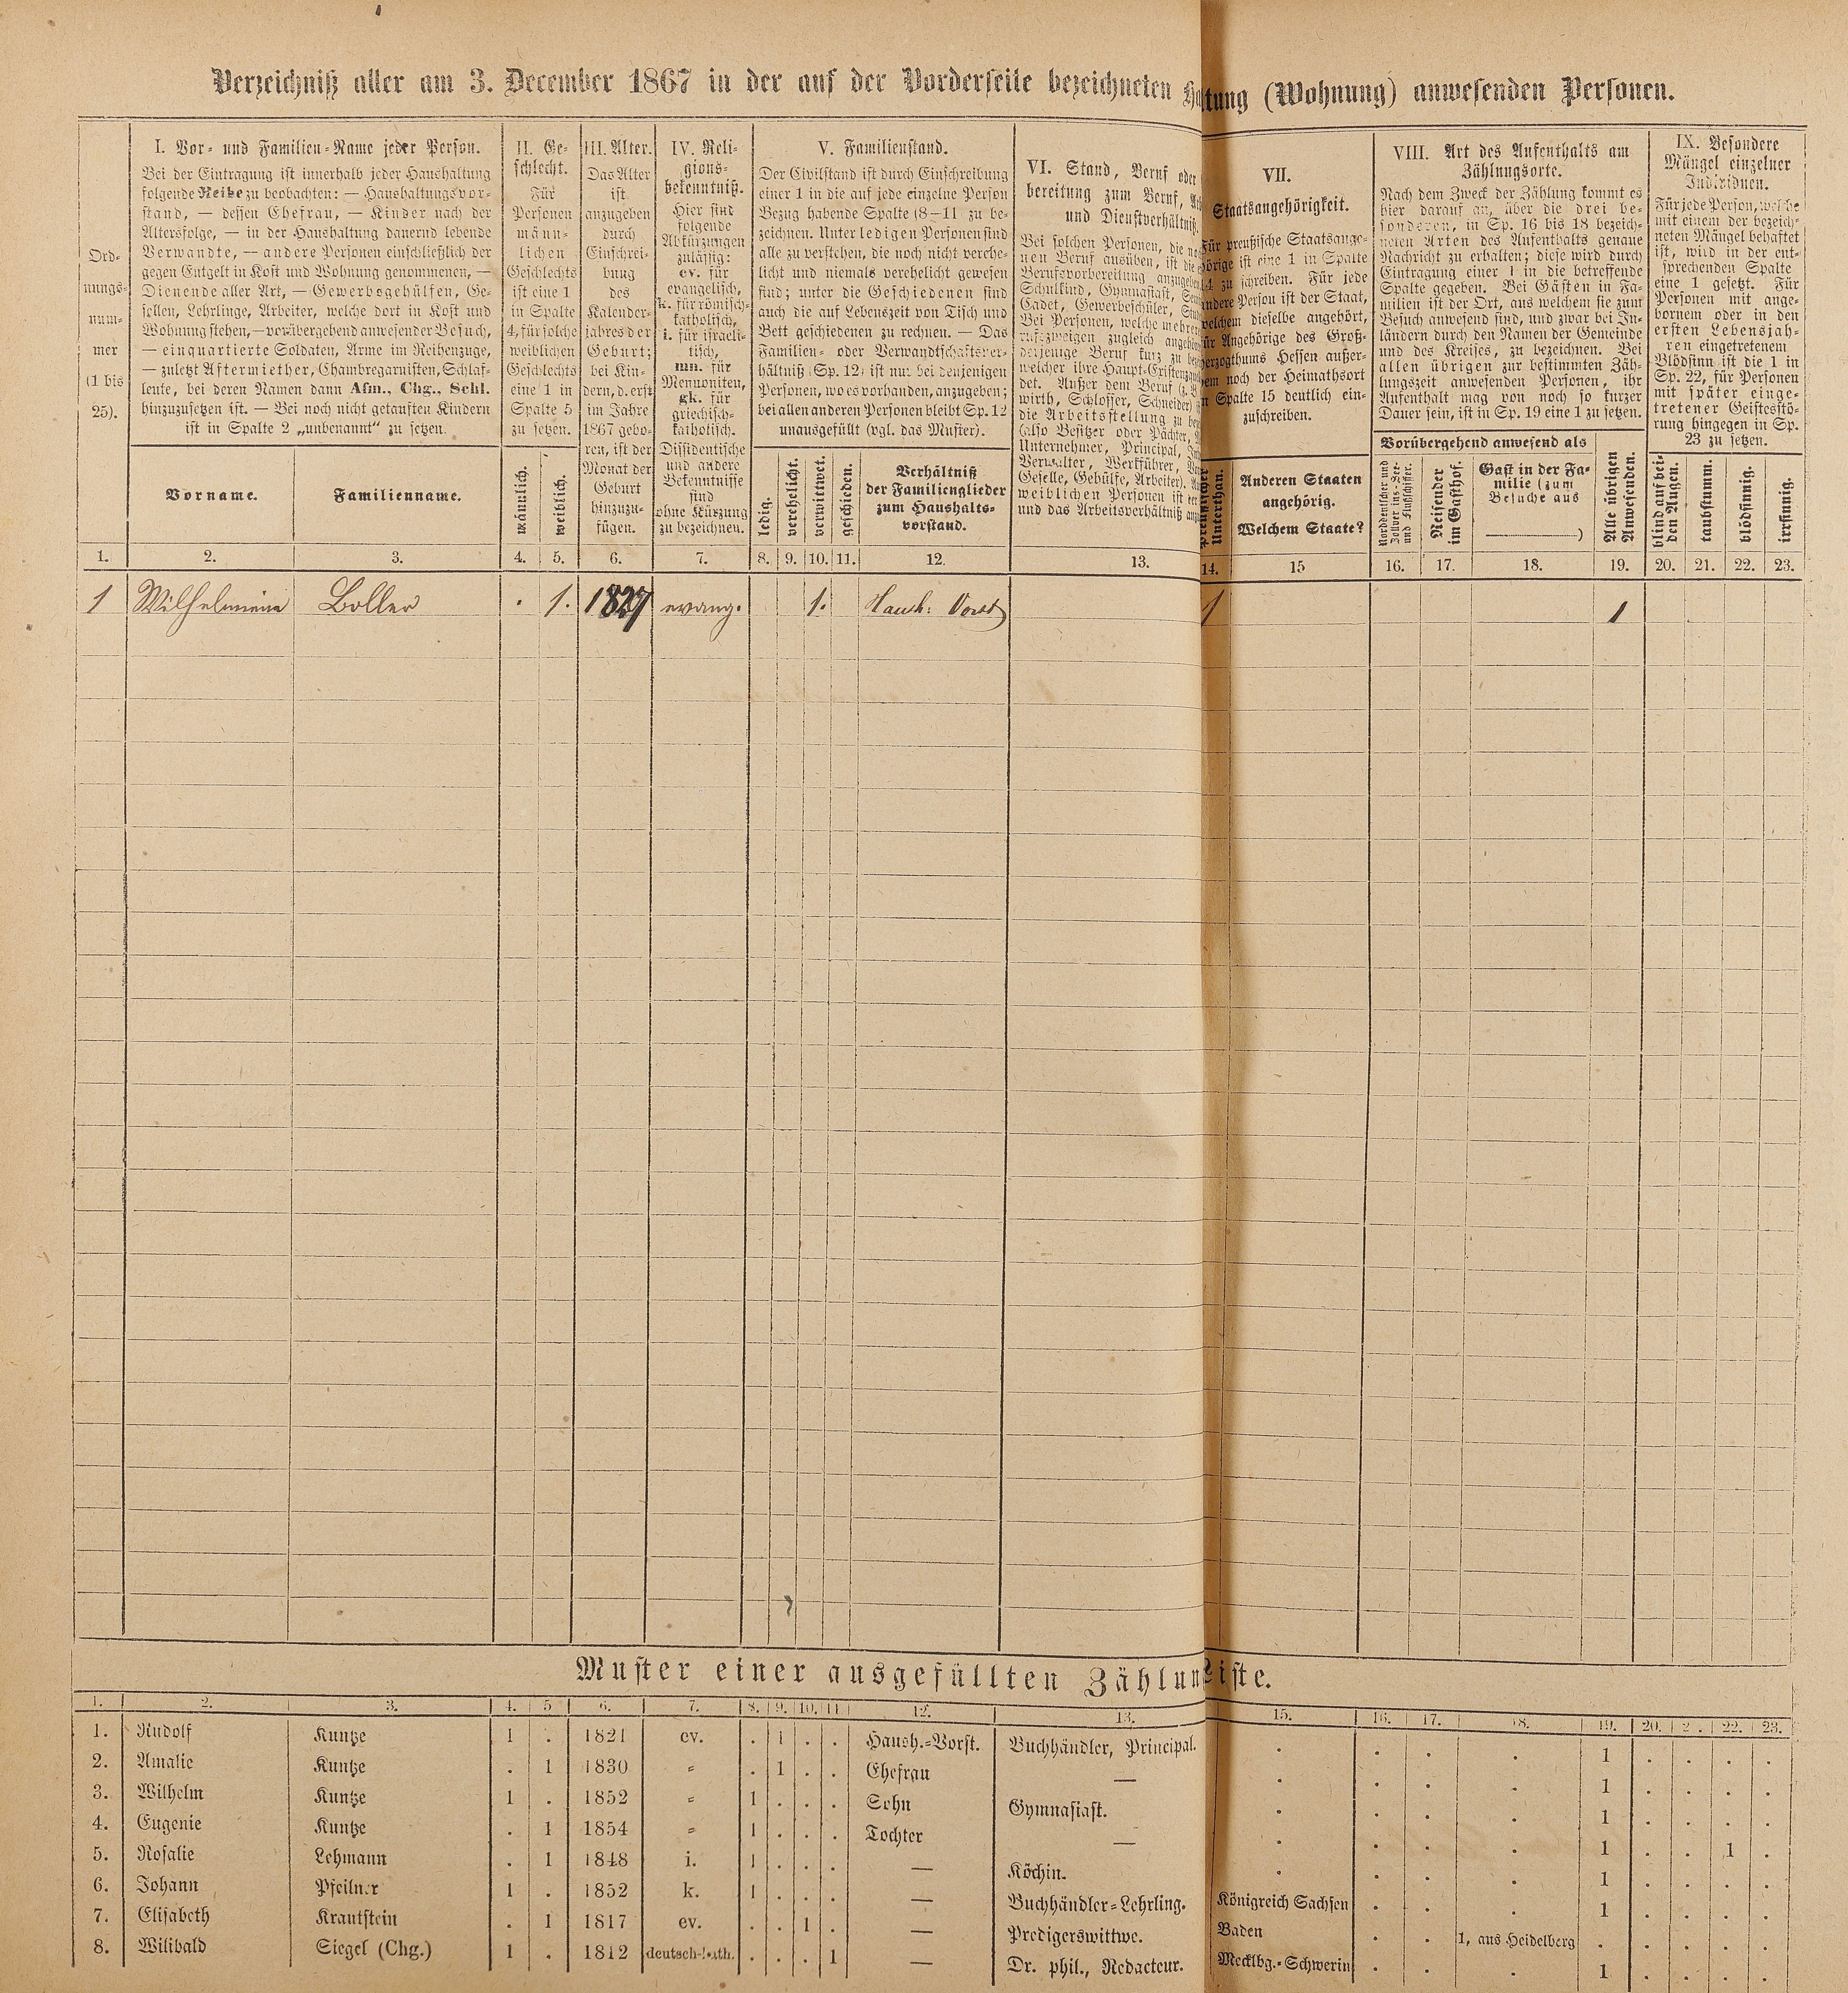 Verzeichniß aller am 3. December 1867 in der auf der Vorderseite bezeichneten Haltung (Wohnung) anwesenden Personen.
Ord-
nungs-
num-
mer
(1 bis
25).
I. Vor- und Familien-Name jeder Person.
Bei der Eintragung ist innerhalb jeder Haushaltung
folgende Reihe zu beobachten: — Haushaltungsvor-
stand, — dessen Ehefrau, — Kinder nach der
Altersfolge, — in der Haushaltung dauernd lebende
Verwandte, — andere Personen einschließlich der
gegen Entgelt in Kost und Wohnung genommenen, —
Dienende aller Art, — Gewerbsgehülfen, Ge-
sellen, Lehrlinge, Arbeiter, welche dort in Kost und
Wohnung stehen, — vorübergehend anwesender Besuch,
— einquartierte Soldaten, Arme im Reihenzuge,
— zuletzt Aftermiether, Chambregarnisten, Schlaf-
leute, bei deren Namen dann Afm., Chg., Schl.
hinzuzusetzen ist. — Bei noch nicht getauften Kindern
ist in Spalte 2 „unbenannt“ zu setzen.
Vorname.
Familienname.
II. Ge-
schlecht.
Für
Personen
männ-
lichen
Geschlechts
ist eine 1
in Spalte
4, für solche
weiblichen
Geschlechts
eine 1 in
Spalte 5
zu setzen.
männlich.
weiblich.
III. Alter.
Das Alter
ist
anzugeben
durch
Einschrei-
bung
des
Kalender-
jahres der
Geburt;
bei Kin-
dern, d. erst
im Jahre
1867 gebo-
ren, ist der
Monat der
Geburt
hinzuzu-
fügen.
IV. Reli-
gions-
bekenntniß.
Hier sind
folgende
Abkürzungen
zulässig:
ev. für
evangelisch,
k. für römisch-
katholisch,
i. für israeli-
tisch,
mn. für
Mennoniten,
gk. für
griechisch-
katholisch.
Dissidentische
und andere
Bekenntnisse
sind
ohne Kürzung
zu bezeichnen.
V. Familienstand.
Der Civilstand ist durch Einschreibung
einer 1 in die auf jede einzelne Person
Bezug habende Spalte (8—11) zu be-
zeichnen. Unter ledigen Personen sind
alle zu verstehen, die noch nicht verehe-
licht und niemals verehelicht gewesen
sind; unter die Geschiedenen sind
auch die auf Lebenszeit von Tisch und
Bett geschiedenen zu rechnen. — Das
Familien- oder Verwandtschaftsver-
hältniß (Sp. 12) ist nur bei denjenigen
Personen, wo es vorhanden, anzugeben;
bei allen anderen Personen bleibt Sp. 12
unausgefüllt (vgl. das Muster).
ledig.
verehelicht.
verwittwet.
geschieden.
Verhältniß
der Familienglieder
zum Haushalts-
vorstand.
VI. Stand, Beruf oder
bereitung zum Beruf,
und Dienstverhältniß.
Bei solchen Personen, die
nen Beruf ausüben, ist die
Berufsvorbereitung anzugeben
Schulkind, Gymnasiast,
Cadet, Gewerbeschüler,
Bei Personen, welche mehrer
rufszweigen zugleich
derjenige Beruf kurz zu
welcher ihre Haupt-Existenz
det. Außer dem Beruf
wirth, Schlosser, Schneider)
die Arbeitsstellung zu
(also Besitzer oder Pächter,
Unternehmer, Principal,
Verwalter, Werkführer,
Geselle, Gehülfe, Arbeiter).
weiblichen Personen ist
und das Arbeitsverhältniß
VII.
Staatsangehörigkeit.
Für preußische Staatsange-
hörige ist eine 1 in Spalte
14 zu schreiben. Für jede
andere Person ist der Staat,
welchem dieselbe angehört,
für Angehörige des Groß-
herzogthums Hessen außer-
dem noch der Heimathsort
in Spalte 15 deutlich ein-
zuschreiben.
Preußischer
Unterthan.
Anderen Staaten
angehörig.
Welchem Staate?
VIII. Art des Aufenthalts am
Zählungsorte.
Nach dem Zweck der Zählung kommt es
hier darauf an, über die drei be-
sonderen, in Sp. 16 bis 18 bezeich-
neten Arten des Aufenthalts genaue
Nachricht zu erhalten; diese wird durch
Eintragung einer 1 in die betreffende
Spalte gegeben. Bei Gästen in Fa-
milien ist der Ort, aus welchem sie zum
Besuch anwesend sind, und zwar bei In-
ländern durch den Namen der Gemeinde
und des Kreises, zu bezeichnen. Bei
allen übrigen zur bestimmten Zäh-
lungszeit anwesenden Personen, ihr
Aufenthalt mag von noch so kurzer
Dauer sein, ist in Sp. 19 eine 1 zu setzen.
Vorübergehend anwesend als
Norddeutscher und
Zollvereins-See-
und Flußschiffer.
Reisender
im Gasthof.
Gast in der Fa-
milie (zum
Besuche aus
)
Alle übrigen
Anwesenden.
IX. Besondere
Mängel einzelner
Individuen.
Für jede Person, welche
mit einem der bezeich-
neten Mängel behaftet
ist, wird in der ent-
sprechenden Spalte
eine 1 gesetzt. Für
Personen mit ange-
bornem oder in den
ersten Lebensjah-
ren eingetretenem
Blödsinn ist die 1 in
Sp. 22, für Personen
mit später einge-
tretener Geistesstö-
rung hingegen in Sp.
23 zu setzen.
blind auf bei-
den Augen.
taubstumm.
blödsinnig.
irrsinnig.
1. 2. 3. 4. 5. 6. 7. 8. 9. 10. 11. 12. 13. 14. 15 16. 17. 18. 19. 20. 21. 22. 23.
1 Wilhelmine Boller . 1. 1827 evang. 1. Haush: Vorst 1 1
Muster einer ausgefüllten Zählungsliste.
1. 2. 3. 4. 5 6. 7. 8. 9. 10. 11 12. 13. 15. 16. 17. 18. 19. 20. 2. 22. 23.
1. Rudolf Kuntze 1 . 1821 ev. . 1 . . Haush.-Vorst. Buchhändler, Principal. . . . . 1 . . . .
2. Amalie Kuntze . 1 1830 „ . 1 . . Ehefrau — . . . . 1 . . . .
3. Wilhelm Kuntze 1 . 1852 „ 1 . . . Sohn Gymnasiast. . . . . 1 . . . .
4. Eugenie Kuntze . 1 1854 „ 1 . . . Tochter — . . . . 1 . . 1 .
5. Rosalie Lehmann . 1 1848 i. 1 . . . — Köchin. . . . . 1 . . . .
6. Johann Pfeilner 1 . 1852 k. 1 . . . — Buchhändler-Lehrling. Königreich Sachsen . . . 1 . . . .
7. Elisabeth Krautstein . 1 1817 ev. . . 1 . — Predigerswittwe. Baden . . 1, aus Heidelberg . . . . .
8. Wilibald Siegel (Chg.) 1 . 1812 deutsch-kath. . . . 1 — Dr. phil., Redacteur. Mecklbg.-Schwerin . . . 1 . . . .